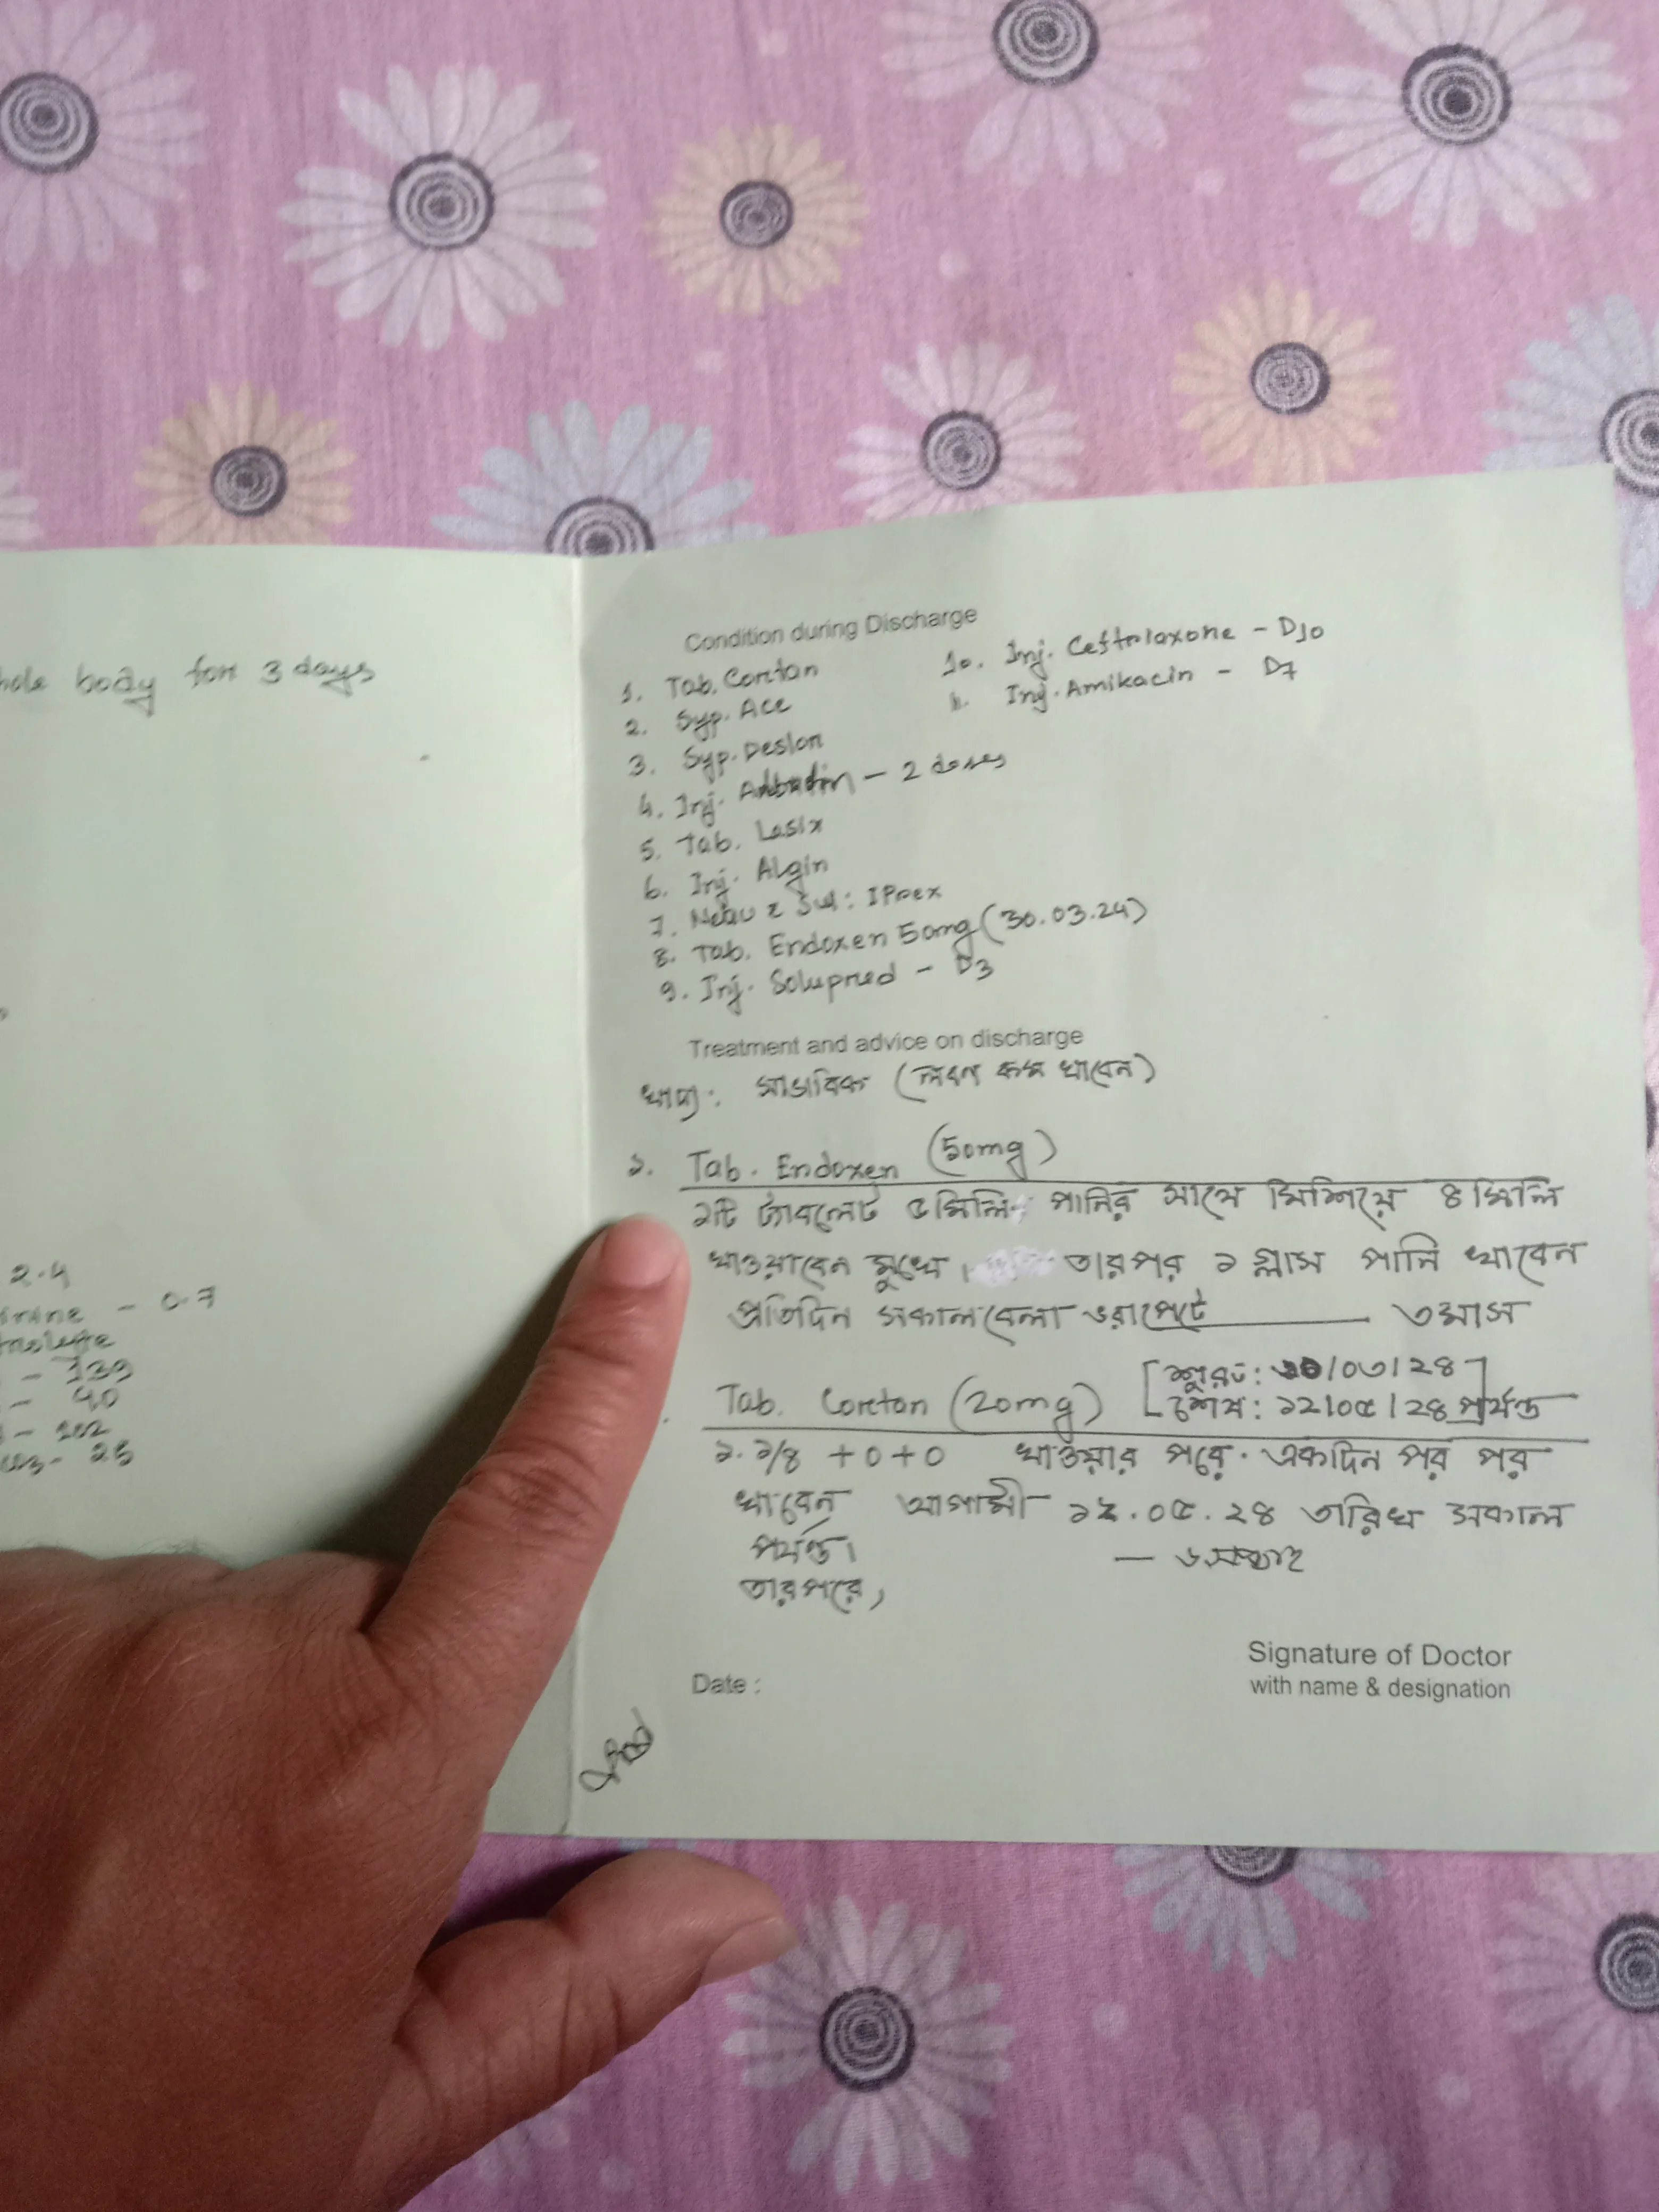 hole body for 3 days
2.4
- 0.7
- 139
- 40
- 102
- 25
Condition during Discharge
1. Tab. Cortan
2. Syp. Ace
3. Syp. Deslor
4. Inj. - 2 doses
5. Tab. Lasix
6. Inj. Algin
7. Nebu Sul: IPrex
8. Tab. Endoxen 50mg (30.03.24)
9. Inj. Soluprred - D3
10. Inj. Ceftriaxone - D10
11. Inj. Amikacin - D7
Treatment and advice on discharge
খাদ্য: স্বাভাবিক (লবণ কম খাবেন)
১. Tab. Endoxen (50mg)
১টি ট্যাবলেট ৫মিলি পানির সাথে মিশিয়ে ৪ মিলি
খাওয়াবেন মুখে। তারপর ১ গ্লাস পানি খাবেন
প্রতিদিন সকালবেলা ভরাপেটে — ৩মাস
[শুরু: /০৩/২৪]
Tab. Cortan (20mg) [শেষ: ১২/০৫/২৪ পর্যন্ত
১.১/৪ +0+0 খাওয়ার পরে. একদিন পর পর
খাবেন আগামী ১২.০৫.২৪ তারিখ সকাল
পর্যন্ত। — ৬সপ্তাহ
তারপরে,
Signature of Doctor
Date : with name & designation